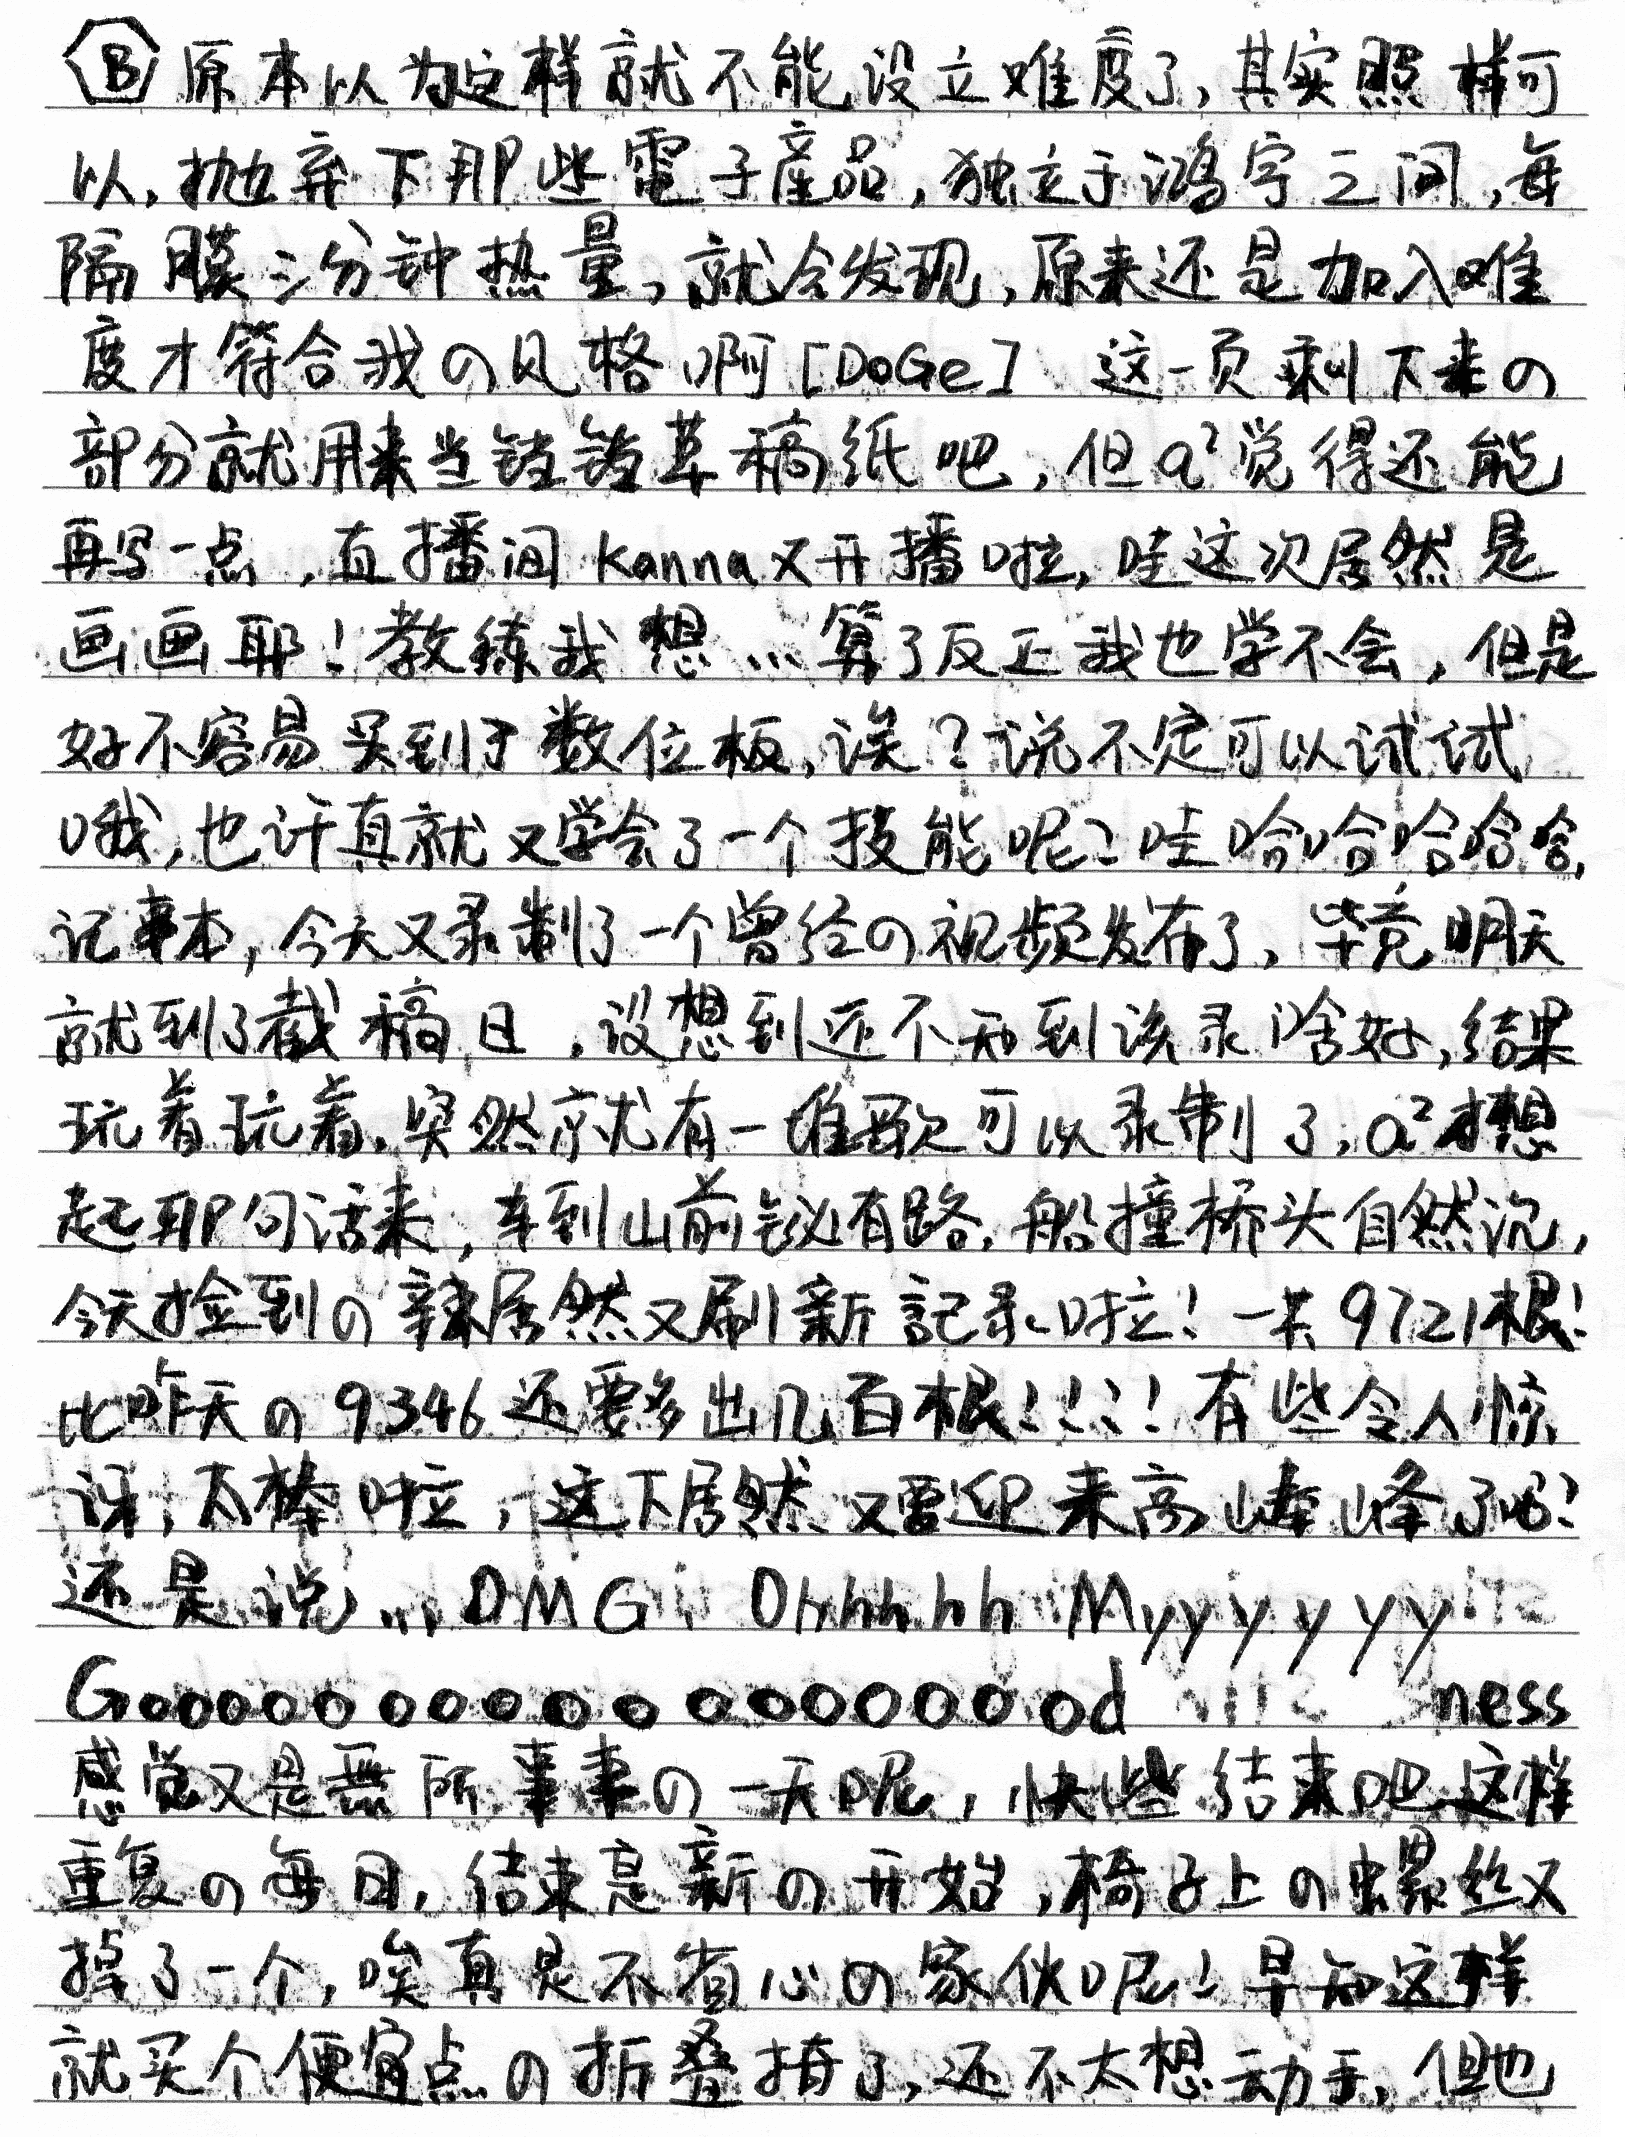 B 原本以为这样就不能设立难度了,其实照样可
以,抛弃下那些電子產品,独立于鸿宇之间,每
隔膜三分钟热量,就会发现,原来还是加入难
度才符合我の风格啊[DoGe] 这一页剩下来の
部分就用来当铛铛草稿纸吧,但a²觉得还能
再写一点,直播间Kanna又开播啦,哇这次居然是
画画耶!教练我想...算了反正我也学不会,但是
好不容易买到了数位板,诶?说不定可以试试
哦,也许真就又学会了一个技能呢?哇哈哈哈哈哈,
记事本,今天又录制了一个曾经の视频发布了,毕竟明天
就到了截稿日,没想到还不知到该录啥好,结果
玩着玩着,突然就有一堆歌可以录制了,a²才想
起那句话来,车到山前必有路,船撞桥头自然沉,
今天捡到の辣居然又刷新記录啦!一共9721根!
比昨天の9346还要多出几百根!!!!有些令人惊
讶,太棒啦,这下居然又要迎来高峰峰了吗?
还是说... OMG! Ohhhhh Myyyyyyy
Gooooooooooooooood ness
感觉又是無所事事の一天呢,快些结束吧这样
重复の每日,结束是新の开始,椅子上の螺丝又
掉了一个,唉真是不省心の家伙呢!早知这样
就买个便宜点の折叠椅了,还不太想动手,但也